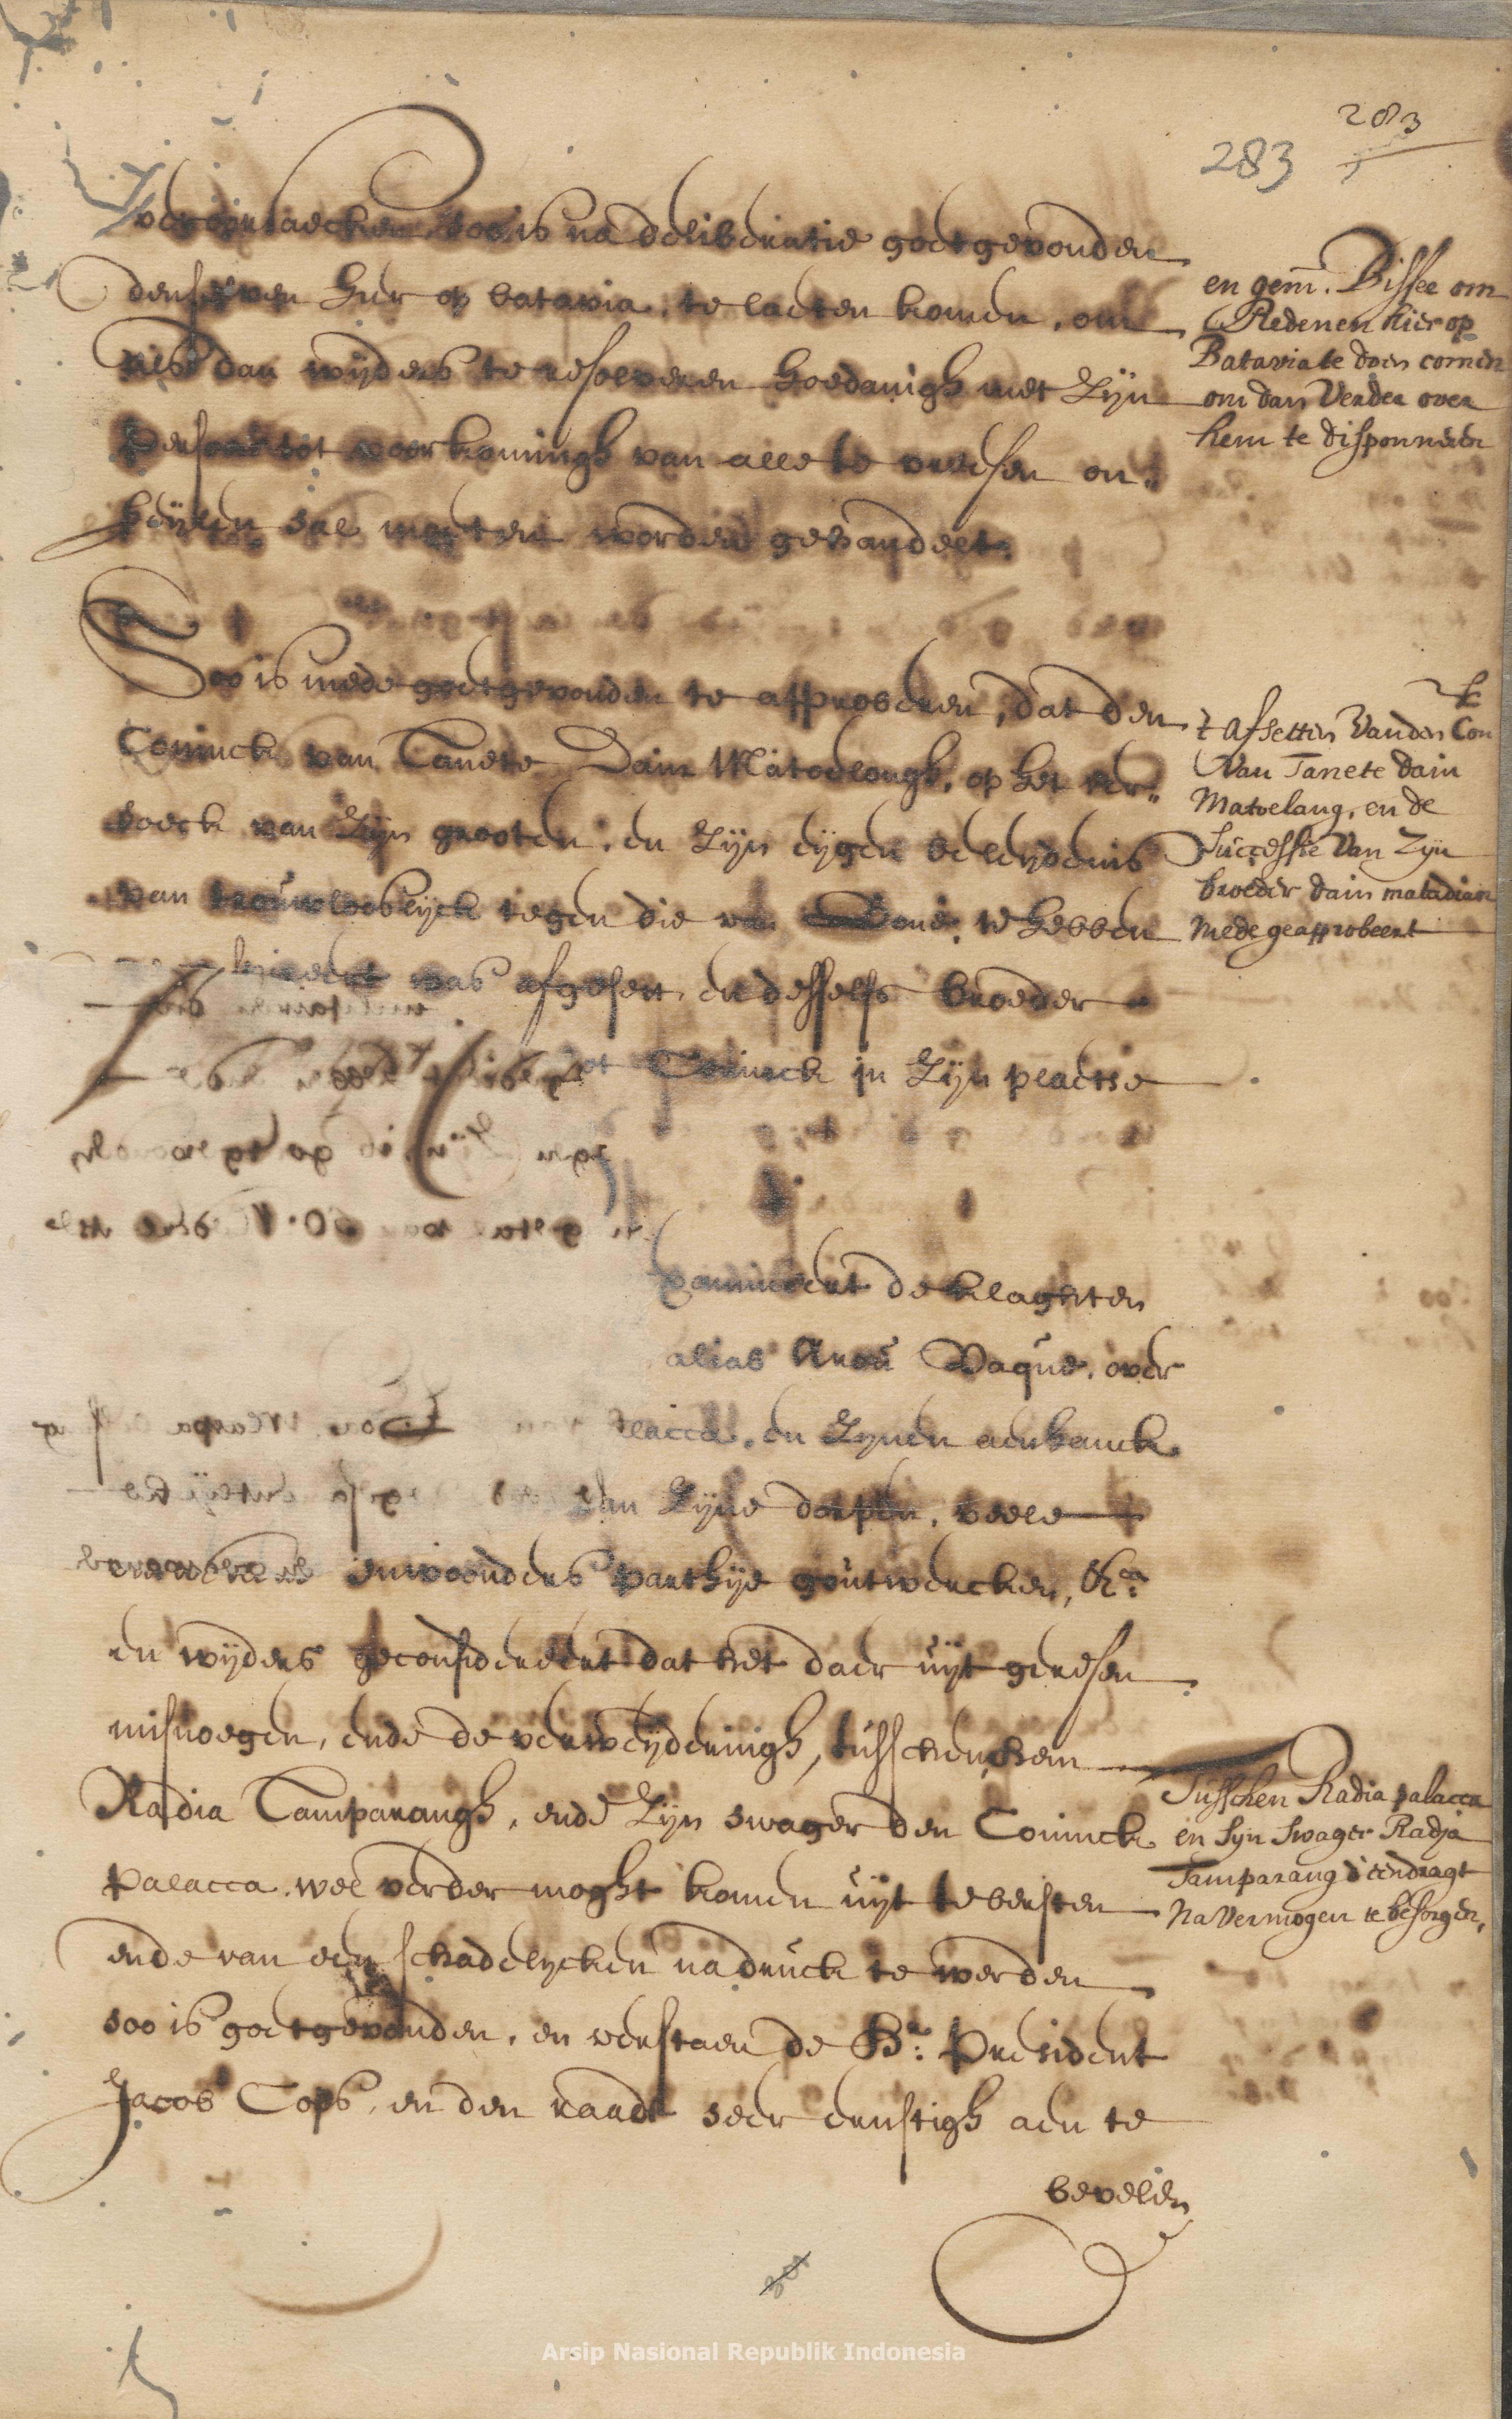 283
283
veroirsaecken, soo is na deliberatie goetgevonden
denselven hier op batavia, te laeten komen, om
als dan wijders te resolveren hoedanigh met zijn
persoon tot voorkomingh van alle te vresen on„
heijlen sal moeten worden gehandelt.
en gem. Bissee om
Redenen hier op
Batavia te doen comen
om dan Verder over
hem te disponneren
Soo is mede goetgevonden te approberen, dat den
Coninck van Tanete Dain Matoelongh, op het ver„
soeck van zijn grooten, en zijn eijgen belijdenis
van trouwlooslijck tegen die van Bone, te hebben
was afgeset, en desselfs broeder
tot Coninck in zijn plaetse
't afsetten Vanden Con
Van Tanete dain
Matoelang, en de
Successie Van Zijn
broeder dain maladian
mede geapprobeert
de klaghten
alias Arou Daque, over
en zijnen aenhanck
van zijne dorpen, veele
inwoonders parthije goutwercken, &ca
en wijders geconsidereert dat het daer uijt geresen
misnoegen, ende de verweijderingh, tusschen hem
Radia Tamparangh, ende zijn swager den Coninck
Palacca, wel verder moght komen uijt te bersten
ende van een schadelycken nadruck te werden
soo is goetgevonden, en verstaen de Hr. President
Jacob Cops, en den raadt seer ernstigh aen te
bevelen
Tusschen Radia palacca
en Sijn Swager Radja
Tamparang d'eendragt
Na Vermogen te besorgen,
Arsip Nasional Republik Indonesia